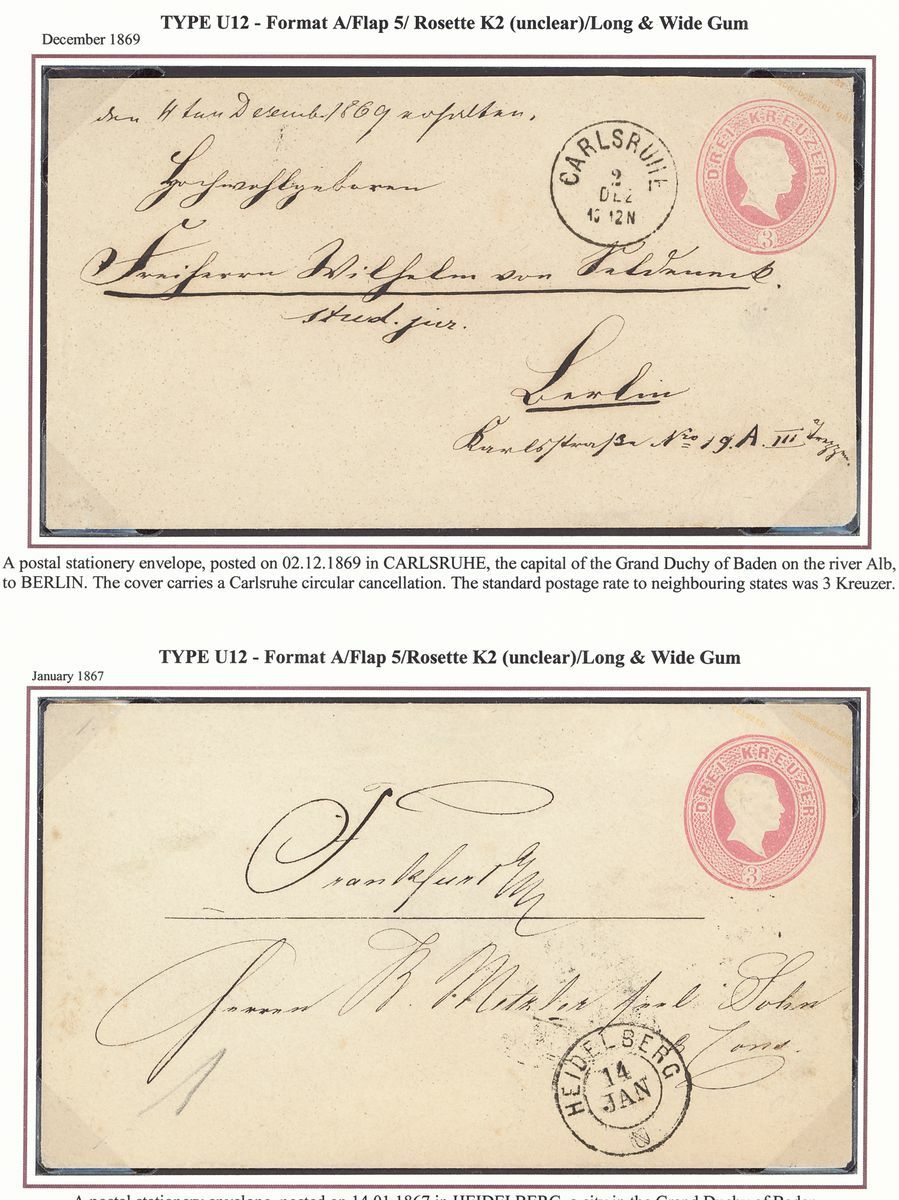 TYPE U12 - Format A/Flap 5/ Rosette K2 (unclear)/Long & Wide Gum
December 1869
den 4ten Dezemb. 1869 erhalten.
Hochwohlgeboren
CARLSRUHE
2
DEZ
DREI KREUZER
3
Freiherrn Wilhelm von Seldeneck.
stud. jur.
Berlin
Karlsstraße Nro 19. A. III Treppen.
A postal stationery envelope, posted on 02.12.1869 in CARLSRUHE, the capital of the Grand Duchy of Baden on the river Alb,
to BERLIN. The cover carries a Carlsruhe circular cancellation. The standard postage rate to neighbouring states was 3 Kreuzer.
TYPE U12 - Format A/Flap 5/Rosette K2 (unclear)/Long & Wide Gum
January 1867
DREI KREUZER
3
Frankfurt a/M
Herren B. Metzler seel. Sohn
& Cons.
1
HEIDELBERG
14
JAN
A postal stationery envelope, posted on 14.01.1867 in HEIDELBERG, a city in the Grand Duchy of Baden